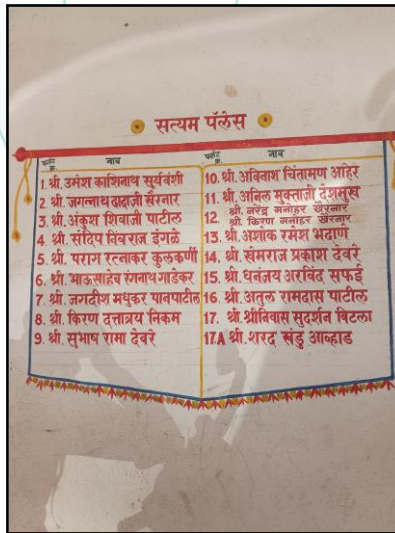 सत्यम पॅलेस
फ्लॅट क्र. नाव
1. श्री. उमेश काशिनाथ सूर्यवंशी
2. श्री. जगन्नाथ दादाजी खैरनार
3. श्री. अंकुश शिवाजी पाटील
4. श्री. संदिप निंबराज इंगळे
5. श्री. पराग रत्नाकर कुळकर्णी
6. श्री. भाऊसाहेब रंगनाथ गाडेकर
7. श्री. जगदीश मधुकर पानपाटील
8. श्री. किरण दत्तात्रय निकम
9. श्री. सुभाष रामा देवरे
फ्लॅट क्र. नाव
10. श्री. अविनाश चिंतामण आहेर
11. श्री. अनिल मुक्ताजी देशमुख
12 श्री. नरेंद्र मनोहर खैरनार
श्री. किरण मनोहर खैरनार
13. श्री. अशोक रमेश भदाणे
14. श्री. खेमराज प्रकाश देवरे
15. श्री. धनंजय अरविंद सफई
16. श्री. अतुल रामदास पाटील
17. श्री. श्रीनिवास सुदर्शन विटला
17A श्री. शरद खंडु आव्हाड